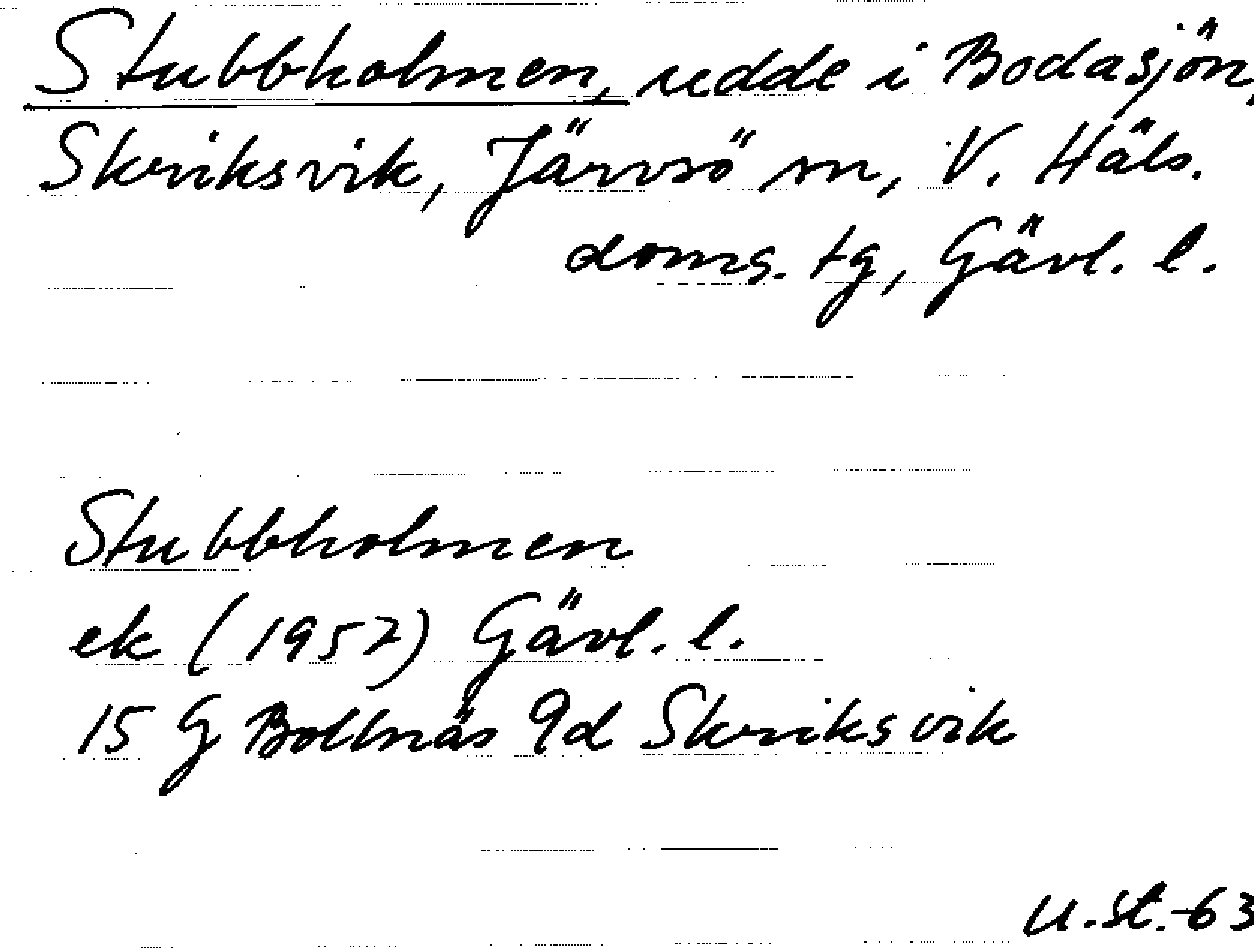 Stubbholmen, udde i Bodasjön,
Skriksvik, Järvsö sn, V. Häls.
doms. tg, Gävl. l.
Stubbholmen
ek (1957) Gävl. l.
15 G Bollnäs 9d Skriksvik
U.St.-63